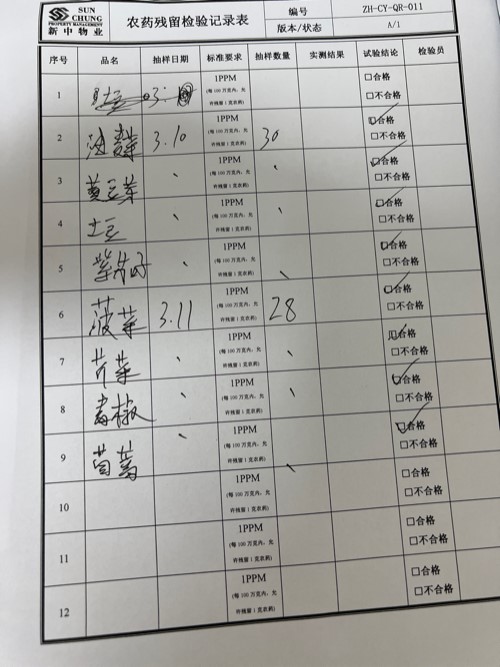 SUN CHUNG
PROPERTY MANAGEMENT
新中物业
农药残留检验记录表
编号 ZH-CY-QR-011
版本/状态 A/1
序号 品名 抽样日期 标准要求 抽样数量 实测结果 试验结论 检验员
1 1PPM (每100万克内，允许残留1克农药) □合格 □不合格
2 油菜 3.10 1PPM (每100万克内，允许残留1克农药) 30 ☑合格 □不合格
3 黄豆芽 、 1PPM (每100万克内，允许残留1克农药) 、 ☑合格 □不合格
4 土豆 、 1PPM (每100万克内，允许残留1克农药) 、 ☑合格 □不合格
5 、 1PPM (每100万克内，允许残留1克农药) 、 ☑合格 □不合格
6 菠菜 3.11 1PPM (每100万克内，允许残留1克农药) 28 ☑合格 □不合格
7 芹菜 、 1PPM (每100万克内，允许残留1克农药) 、 ☑合格 □不合格
8 青椒 、 1PPM (每100万克内，允许残留1克农药) 、 ☑合格 □不合格
9 、 1PPM (每100万克内，允许残留1克农药) 、 ☑合格 □不合格
10 1PPM (每100万克内，允许残留1克农药) □合格 □不合格
11 1PPM (每100万克内，允许残留1克农药) □合格 □不合格
12 1PPM (每100万克内，允许残留1克农药) □合格 □不合格